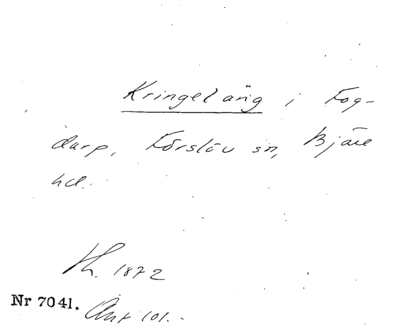 Kringeläng i Fog-
darp, Förslöv sn, Bjäre
hd.
Th. 1872
Nr 7041. Ant 101.